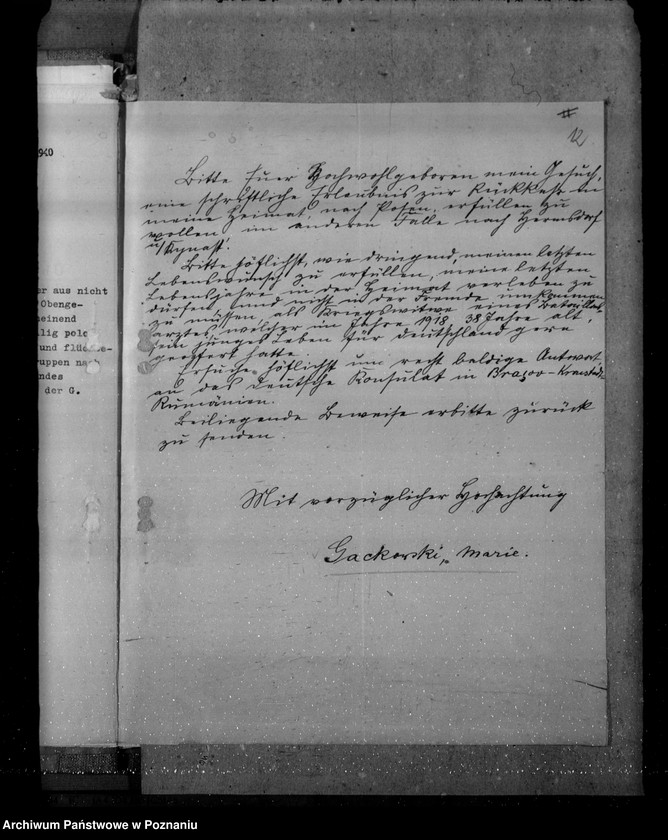 940
er aus nicht
Obenge-
heinend
lig pole
und flücht-
ruppen nach
ndes
der G.
12
Bitte Euer Hochwohlgeboren mein Gesuch,
eine schriftliche Erlaubnis zur Rückkehr in
meine Heimat, nach Posen, erfüllen zu
wollen, im anderen Falle nach Hermsdorf
u/Kynast.
Bitte höflichst, wie dringend, meinen letzten
Lebenswunsch zu erfüllen, meine letzten
Lebensjahre in der Heimat verleben zu
dürfen und nicht in der Fremde umkommen
zu müssen als Kriegswitwe eines Bataillons
arztes, welcher im Jahre 1918 38 Jahre alt
sein junges Leben für Deutschland gern
geopfert hatte.
Ersuche höflichst um recht baldige Antwort
an das Deutsche Konsulat in Braşov-Kronstadt
Rumänien.
Beiliegende Beweise erbitte zurück
zu senden.
Mit vorzüglicher Hochachtung
Gackowski, Marie.
Archiwum Państwowe w Poznaniu